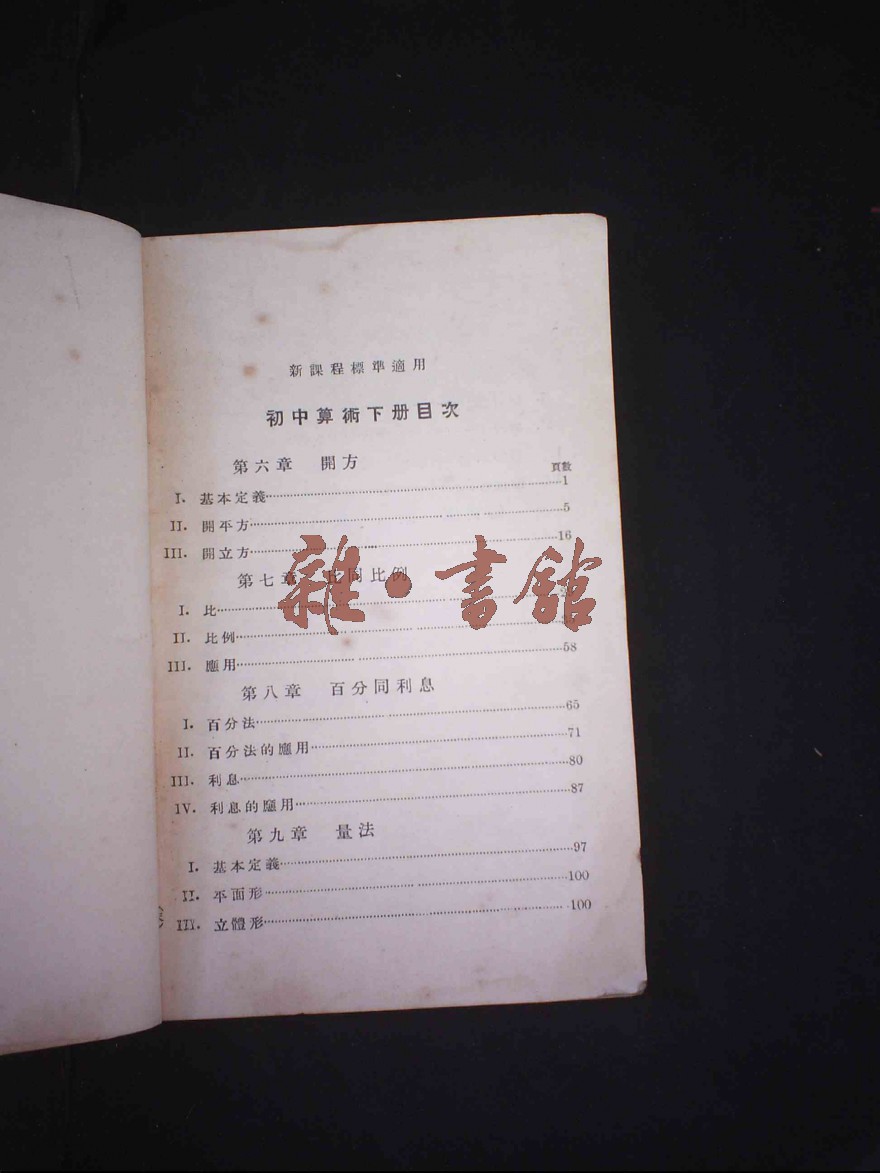 新課程標準適用
初中算術下册目次
第六章 開方
頁數
I. 基本定義 1
II. 開平方 5
III. 開立方 16
第七章 比同比例
I. 比
II. 比例
III. 應用 58
第八章 百分同利息
I. 百分法 65
II. 百分法的應用 71
III. 利息 80
IV. 利息的應用 87
第九章 量法
I. 基本定義 97
II. 平面形 100
III. 立體形 100
雜·書館